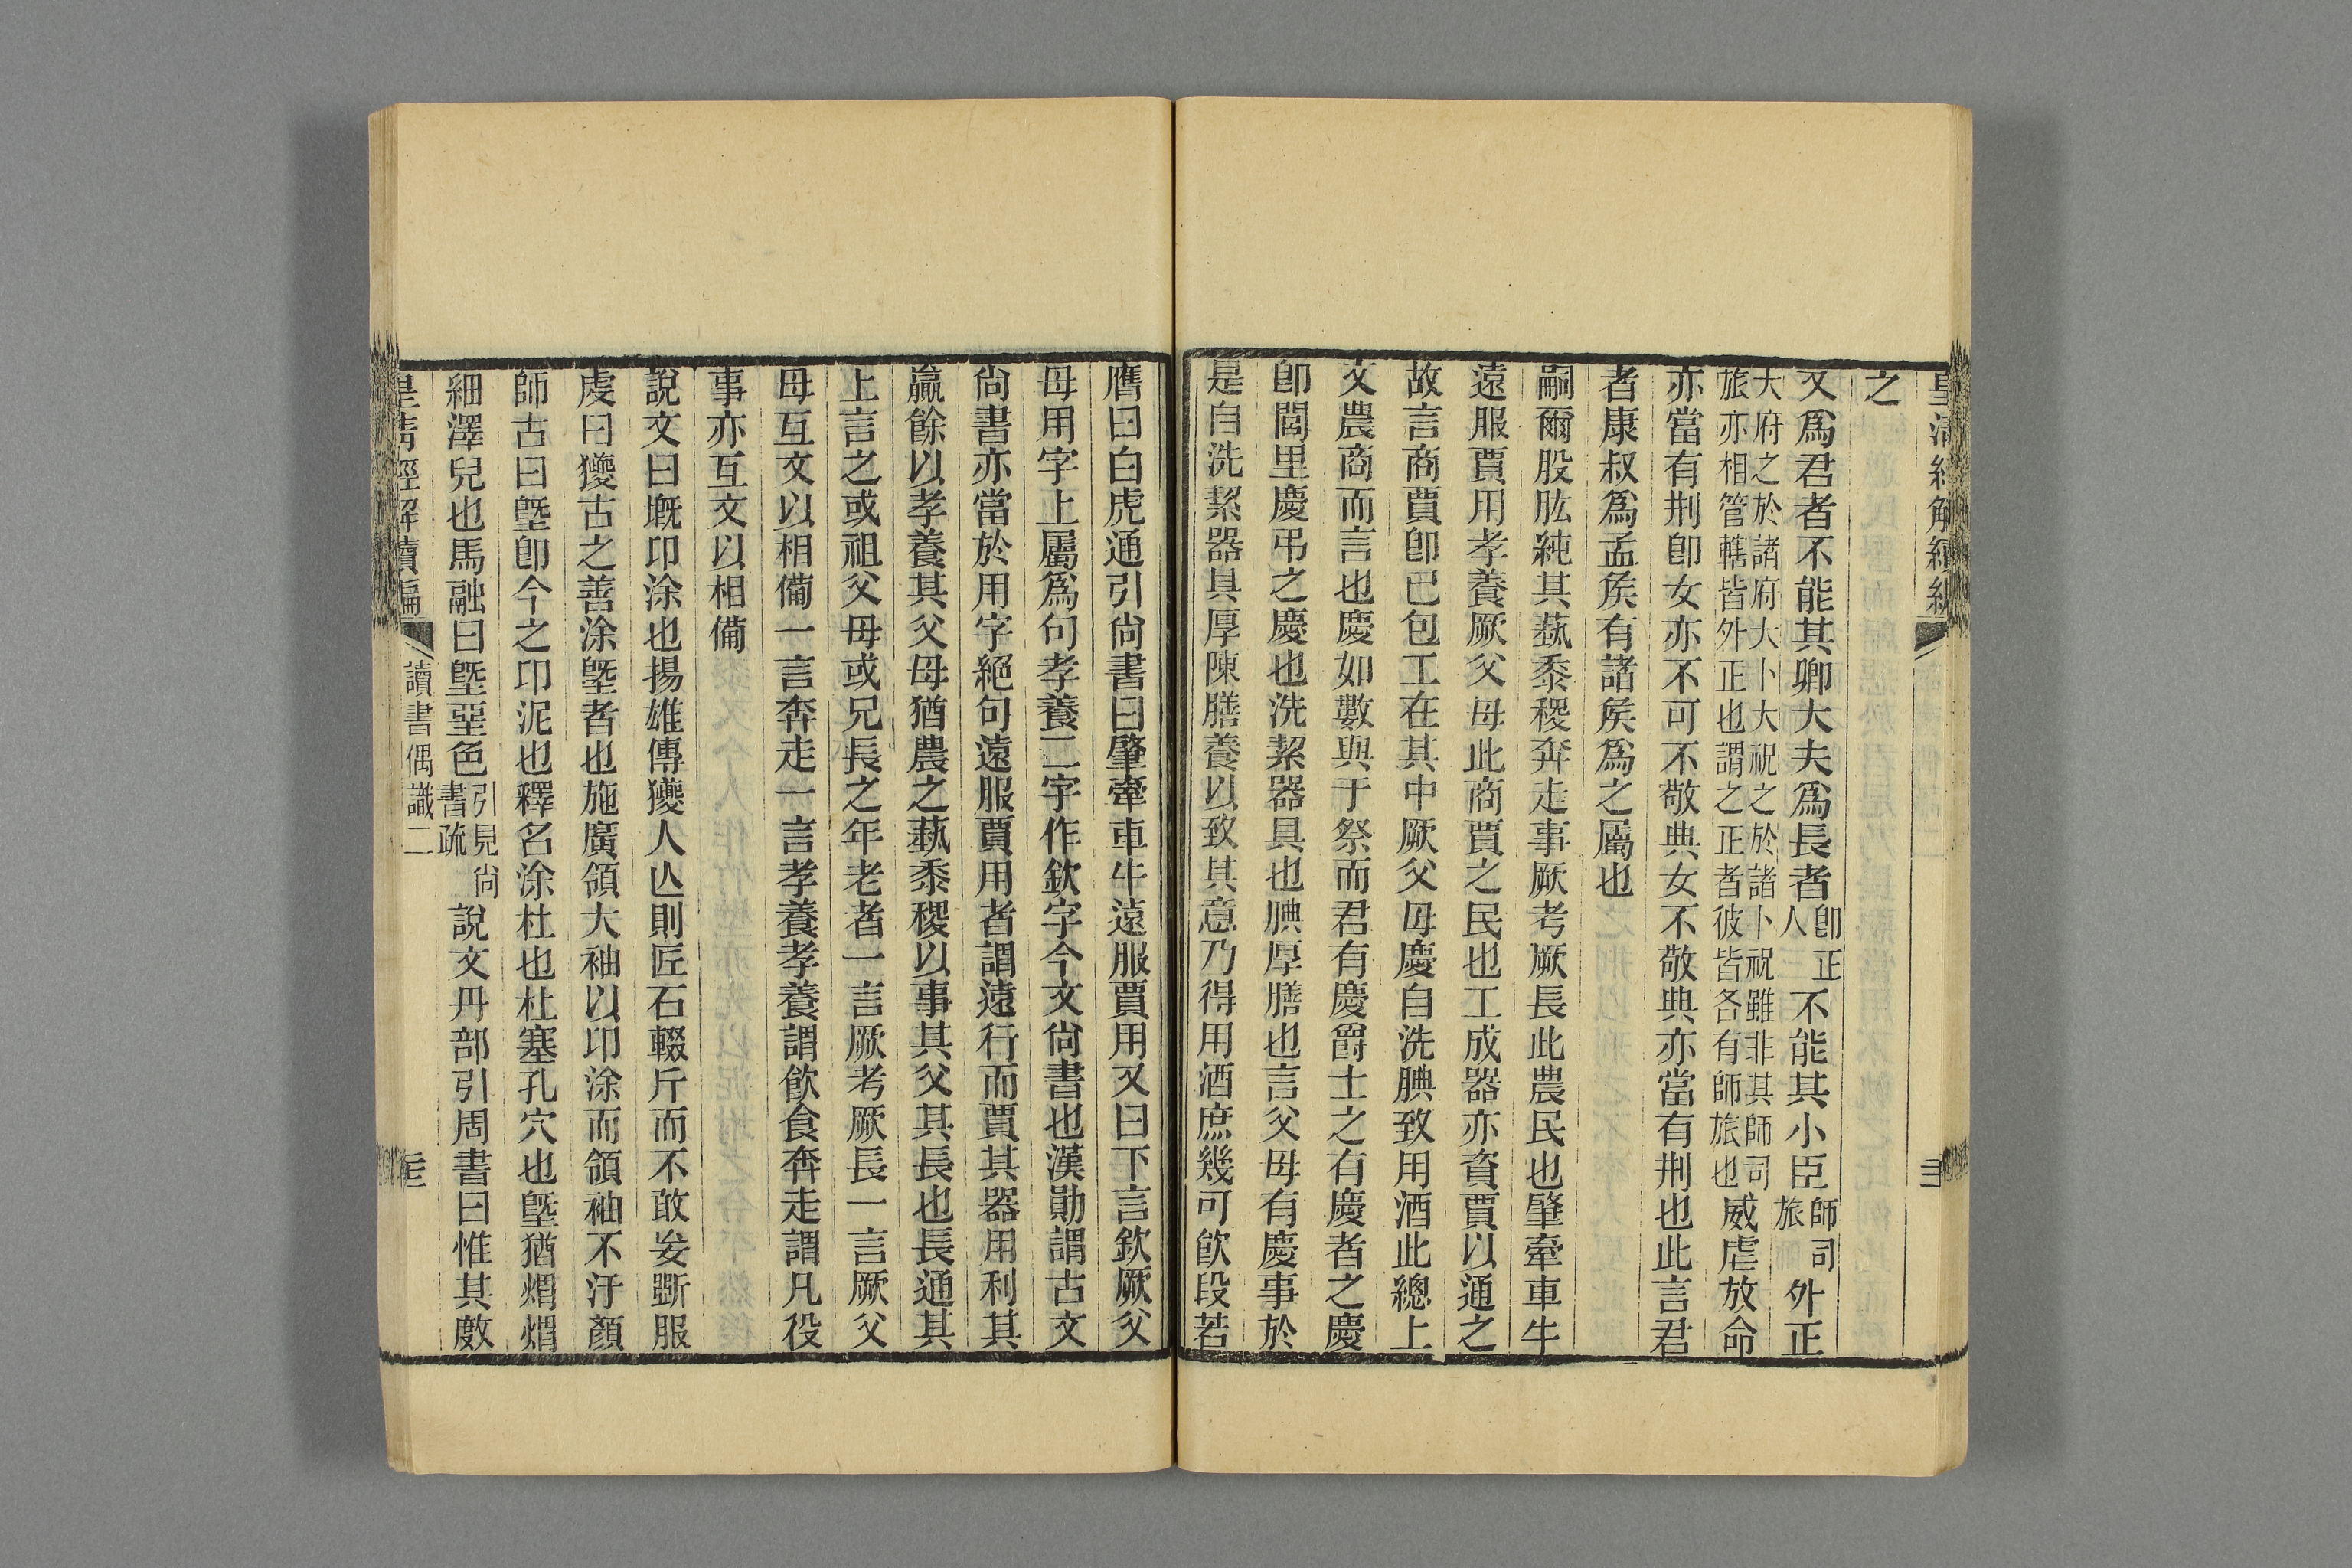 之
又爲君者不能其卿大夫爲長者卽正人不能其小臣師司旅外正
大府之於諸府大卜大祝之於諸卜祝雖非其師司
旅亦相管轄皆外正也謂之正者彼皆各有師旅也威虐放命
亦當有荆卽女亦不可不敬典女不敬典亦當有荆也此言君
者康叔爲孟矦有諸矦爲之屬也
嗣爾股肱純其蓺黍稷奔走事厥考厥長此農民也肇牽車牛
遠服賈用孝養厥父母此商賈之民也工成器亦資賈以通之
故言商賈卽已包工在其中厥父母慶自洗腆致用酒此總上
文農商而言也慶如數與于祭而君有慶爵士之有慶者之慶
卽閭里慶弔之慶也洗絜器具也腆厚膳也言父母有慶事於
是自洗絜器具厚陳膳養以致其意乃得用酒庶幾可飮段若
膺曰白虎通引尙書曰肇牽車牛遠服賈用又曰下言欽厥父
母用字上屬爲句孝養二字作欽字今文尙書也漢勛謂古文
尙書亦當於用字絕句遠服賈用者謂遠行而賈其器用利其
贏餘以孝養其父母猶農之蓺黍稷以事其父其長也長通其
上言之或祖父母或兄長之年老者一言厥考厥長一言厥父
母互文以相備一言奔走一言孝養孝養謂飮食奔走謂凡役
事亦互文以相備
說文曰墍卬涂也揚雄傳獿人亾則匠石輟斤而不敢妄斲服
虔曰獿古之善涂墍者也施廣領大袖以卬涂而領袖不汙顏
師古曰墍卽今之卬泥也釋名涂杜也杜塞孔穴也墍猶煟煟
細澤皃也馬融曰墍堊色引見尙書疏說文丹部引周書曰惟其敿
讀書偶識二